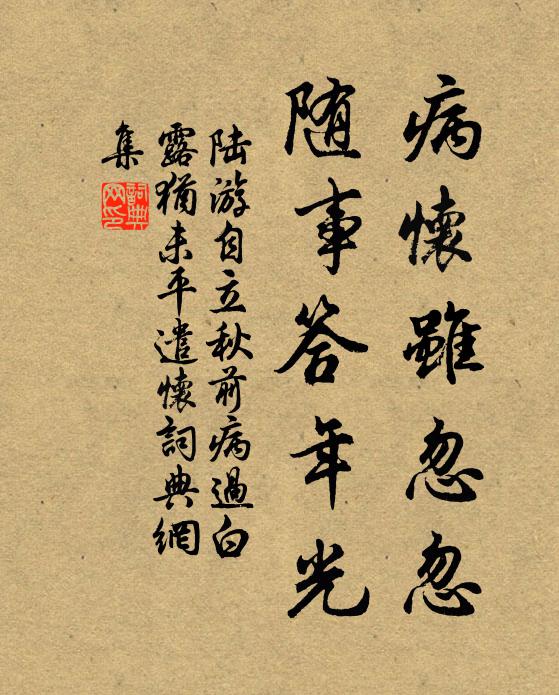 病懷雖忽忽
随事答年光
陆游自立秋前病過白
露猶未平遣懷詞典網
集
詞典
网印